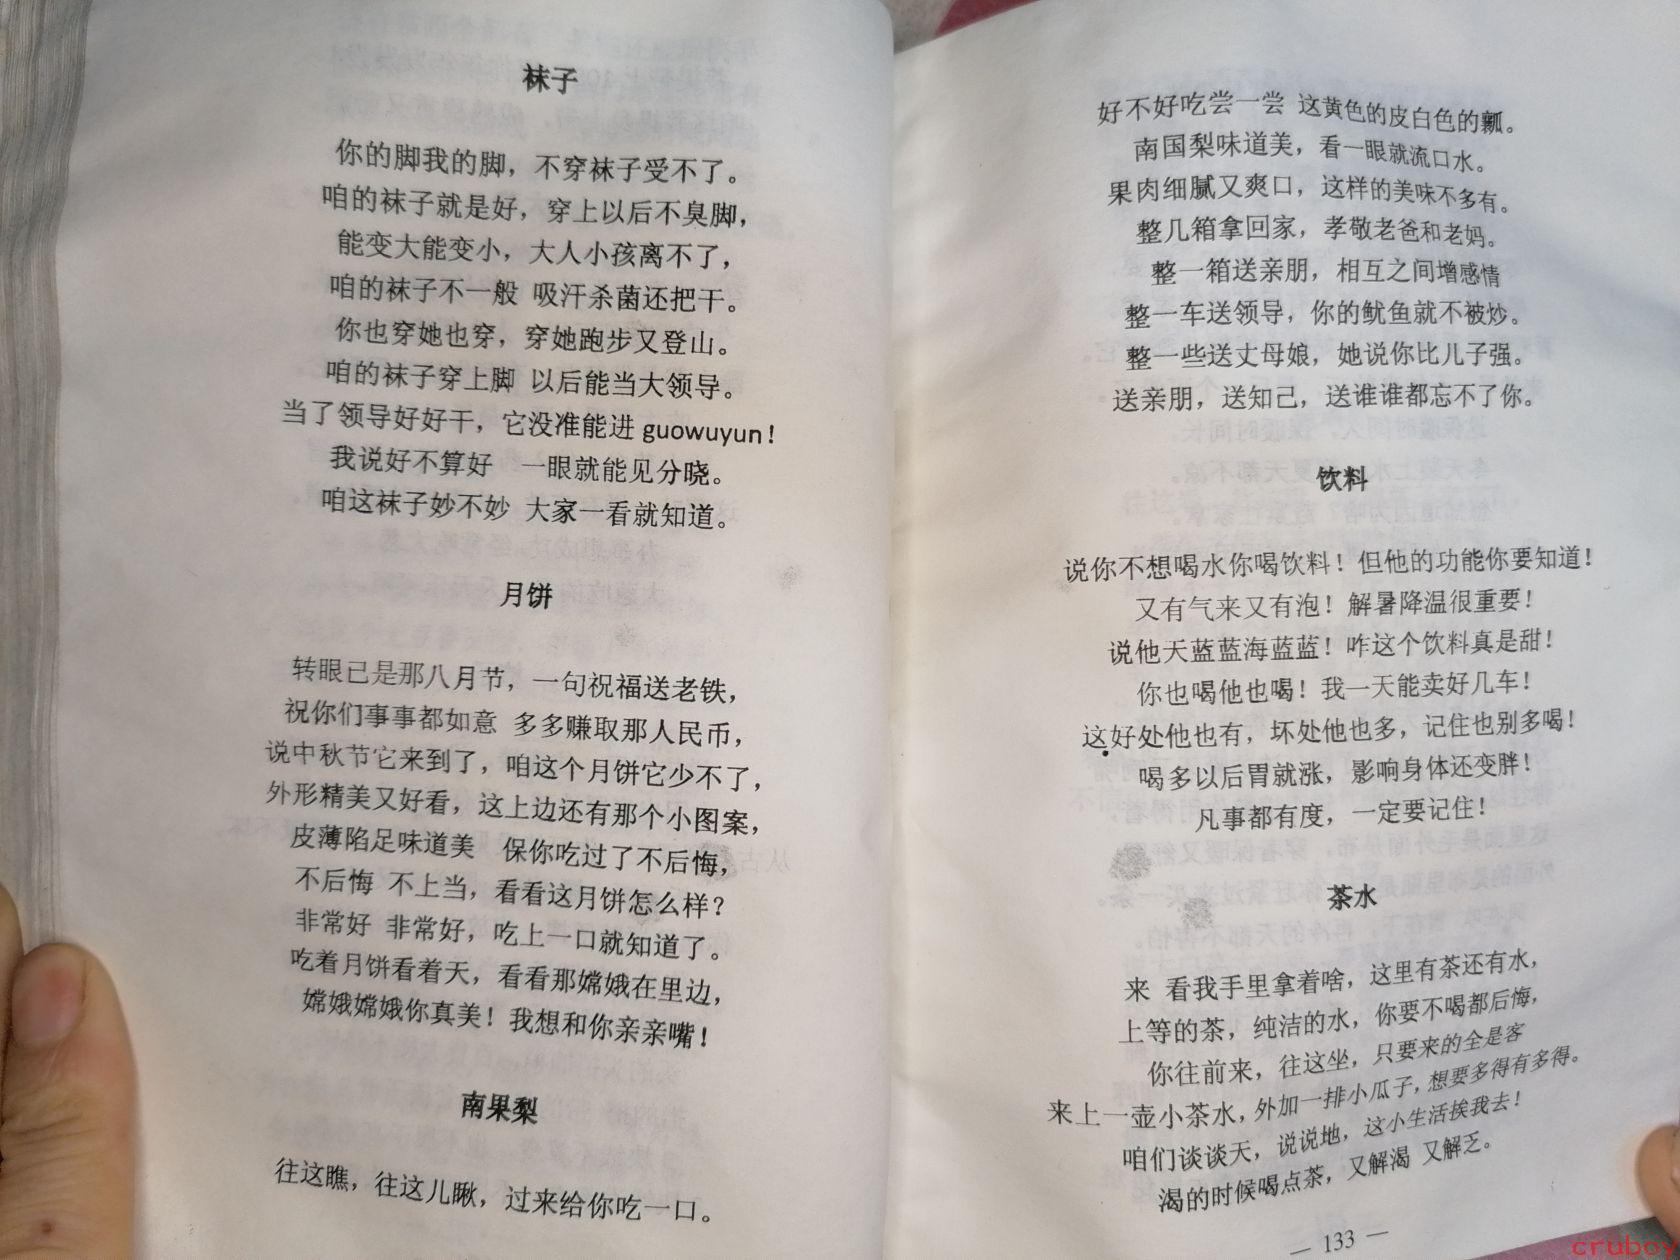 袜子
你的脚我的脚，不穿袜子受不了。
咱的袜子就是好，穿上以后不臭脚，
能变大能变小，大人小孩离不了，
咱的袜子不一般 吸汗杀菌还把干。
你也穿她也穿，穿她跑步又登山。
咱的袜子穿上脚 以后能当大领导。
当了领导好好干，它没准能进 guowuyun！
我说好不算好 一眼就能见分晓。
咱这袜子妙不妙 大家一看就知道。
月饼
转眼已是那八月节，一句祝福送老铁，
祝你们事事都如意 多多赚取那人民币，
说中秋节它来到了，咱这个月饼它少不了，
外形精美又好看，这上边还有那个小图案，
皮薄陷足味道美 保你吃过了不后悔，
不后悔 不上当，看看这月饼怎么样？
非常好 非常好，吃上一口就知道了。
吃着月饼看着天，看看那嫦娥在里边，
嫦娥嫦娥你真美！我想和你亲亲嘴！
南果梨
往这瞧，往这儿瞅，过来给你吃一口。
好不好吃尝一尝 这黄色的皮白色的瓤。
南国梨味道美，看一眼就流口水。
果肉细腻又爽口，这样的美味不多有。
整几箱拿回家，孝敬老爸和老妈。
整一箱送亲朋，相互之间增感情
整一车送领导，你的鱿鱼就不被炒。
整一些送丈母娘，她说你比儿子强。
送亲朋，送知己，送谁谁都忘不了你。
饮料
说你不想喝水你喝饮料！但他的功能你要知道！
又有气来又有泡！解暑降温很重要！
说他天蓝蓝海蓝蓝！咋这个饮料真是甜！
你也喝他也喝！我一天能卖好几车！
这好处他也有，坏处他也多，记住也别多喝！
喝多以后胃就涨，影响身体还变胖！
凡事都有度，一定要记住！
茶水
来 看我手里拿着啥，这里有茶还有水，
上等的茶，纯洁的水，你要不喝都后悔，
你往前来，往这坐，只要来的全是客
来上一壶小茶水，外加一排小瓜子，想要多得有多得。
咱们谈谈天，说说地，这小生活挨我去！
渴的时候喝点茶，又解渴 又解乏。
— 133 —
cruboy